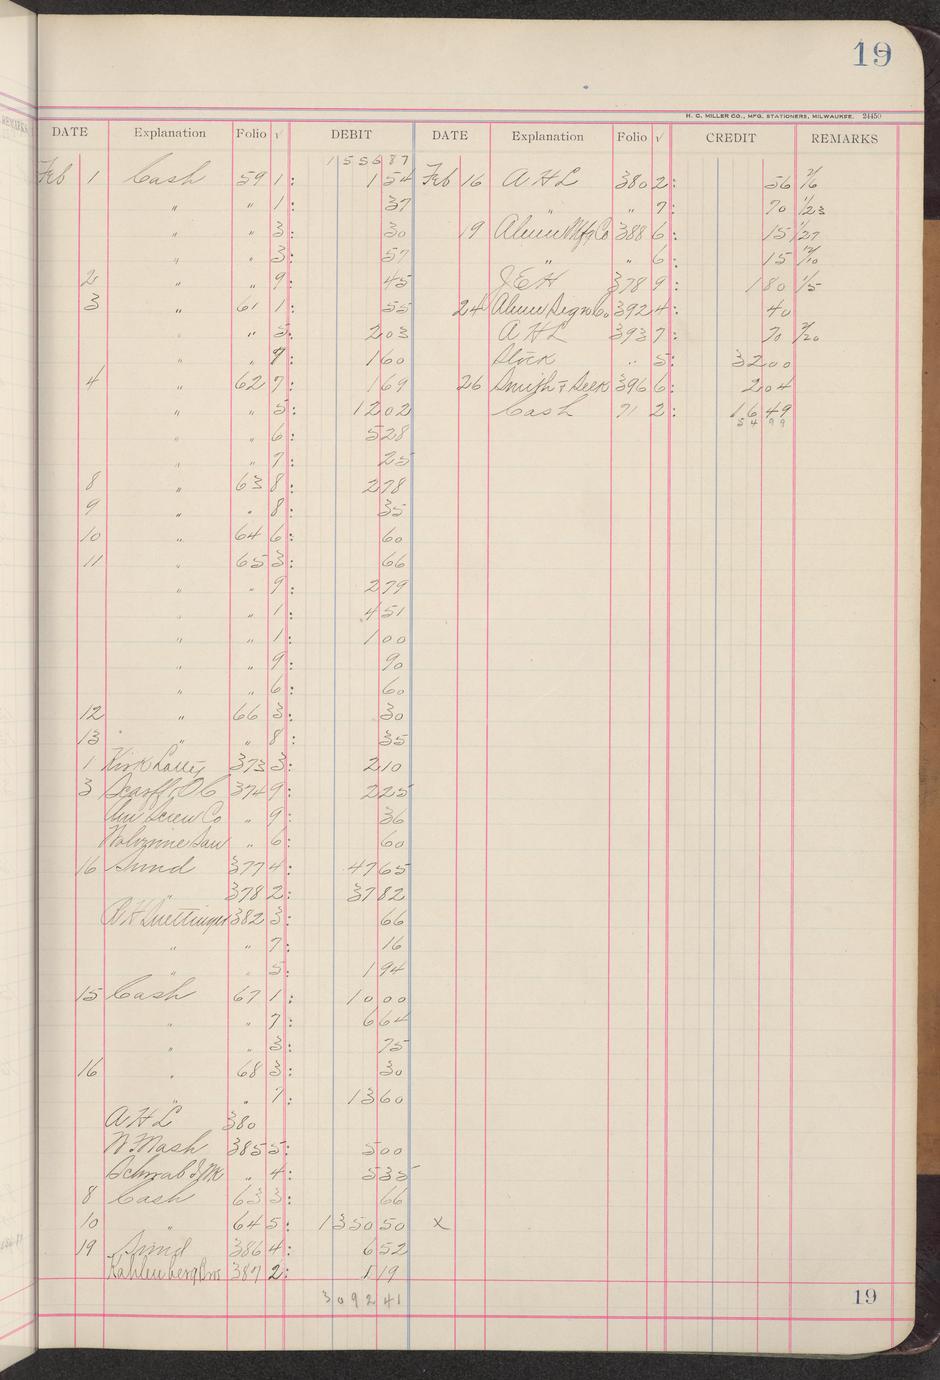 19
H. C. MILLER CO., MFG. STATIONERS, MILWAUKEE. 24450
DATE Explanation Folio √ DEBIT DATE Explanation Folio √ CREDIT REMARKS
155687
Feb 1 Cash 59 1: 154 Feb 16 A H L 380 2: 56
" " 1: 37 " " 7: 70 1/23
" " 3: 30 19 Alum Mfg Co 388 6: 15 1/27
" " 3: 57 " " 6: 15
2 " " 9: 45 J E H 378 9: 180 1/5
3 " 61 1: 55 24 Alum Sign Co 392 4: 40
" " 5: 203 A H L 393 7: 70
" " 9: 160 Stock " 5: 3200
4 " 62 7: 169 26 Smith & Seek 396 6: 204
" " 5: 1202 Cash 71 2: 1649
" 6: 528 5499
" " 7: 25
8 " 63 8: 278
9 " " 8: 35
10 " 64 6: 60
11 " 65 3: 66
" " 9: 279
" " 1: 451
" " 1: 100
" " 9: 90
" " 6: 60
12 " 66 3: 30
13 " " 8: 35
1 Kirk 373 3: 210
3 374 9: 225
Am Screw Co " 9: 36
Wolverine " 6: 60
16 Sund 377 4: 4765
" 378 2: 3782
382 3: 66
" " 7: 16
" " 5: 194
15 Cash 67 1: 1000
" " 7: 664
" 3: 75
16 " 68 3: 30
" " 7: 1360
A H L 380
W. Mash 385 5: 500
Schwab " 4: 535
8 Cash 63 3: 66
10 " 64 5: 135050 x
19 Sund 386 4: 652
Kahlenberg Bros 387 2: 119
309241
19